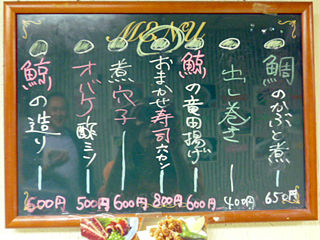 MENU
鯛のかぶと煮 650円
出し巻き 400円
鯨の竜田揚げ 600円
おまかせ寿司六カン 800円
煮穴子 600円
オバケ酢ミソ 500円
鯨の造り 600円